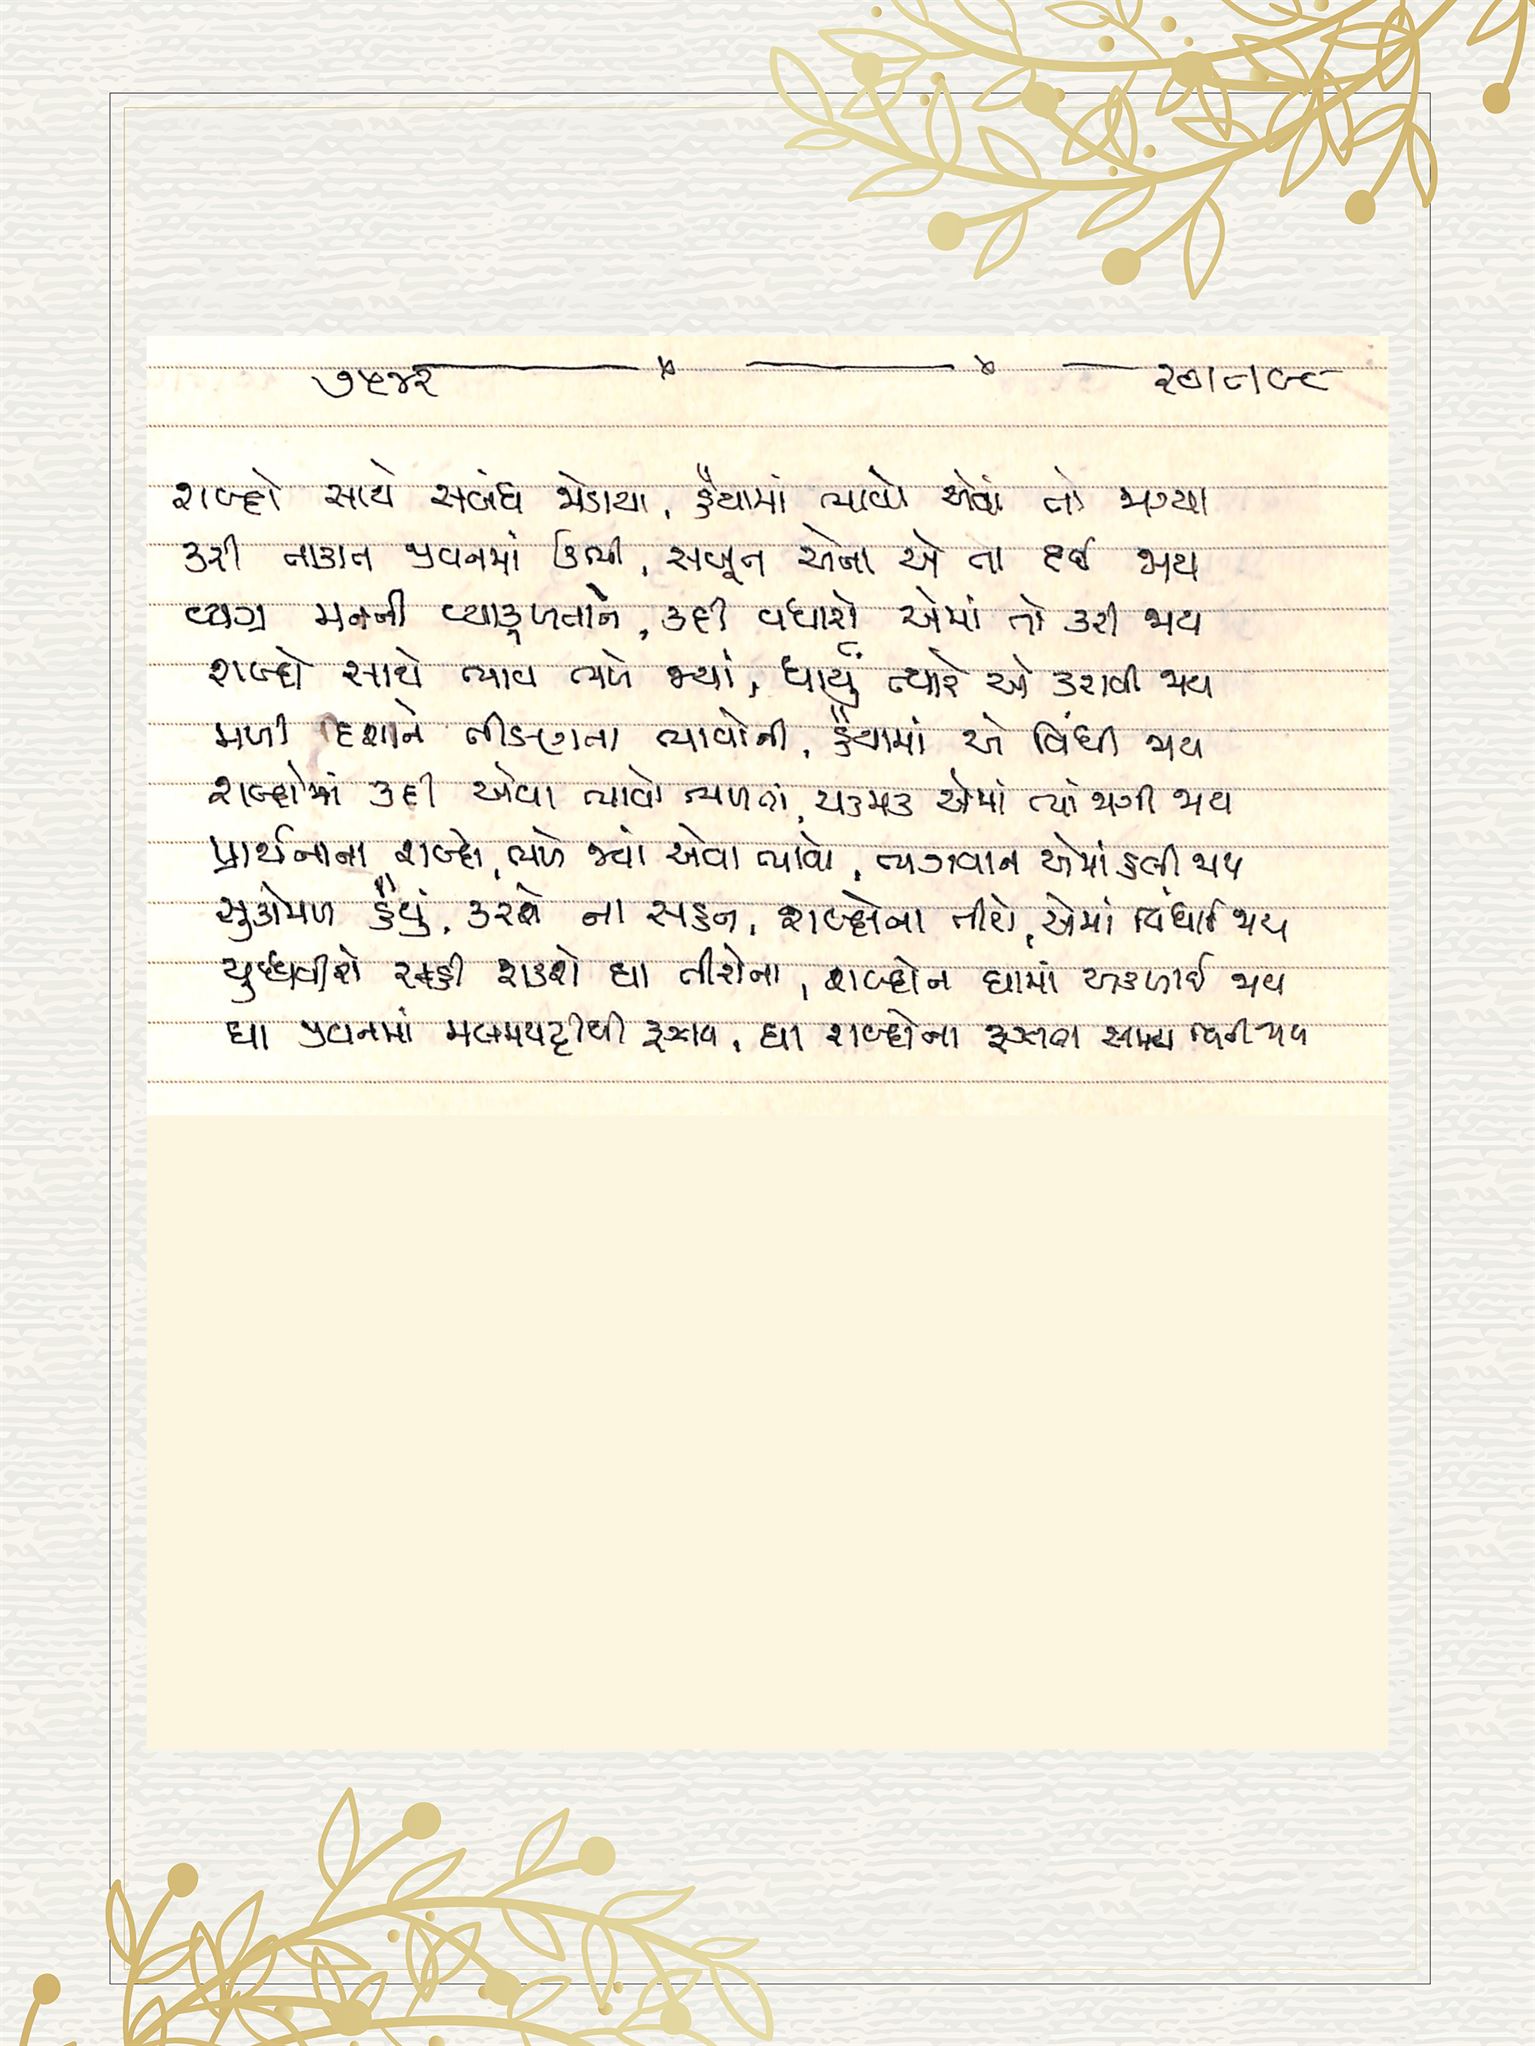 ૭૫૪૨
શબ્દો સાથે સબંધ જોડાયા, હૈયામાં ભાવો એવાં તો જાગ્યા
કરી તોફાન જીવનમાં ઊભી, સબૂત એના એ તો દઈ જાય
વ્યગ્ર મનની વ્યાકુળતાને, કદી વધારો એમાં તો કરી જાય
શબ્દો સાથે ભાવ ભળે જ્યાં, ધાર્યું ત્યારે એ કરાવી જાય
મળી દિશાને તીક્ષ્ણતા ભાવોની, હૈયામાં એ વિંધી જાય
શબ્દોમાં કદી એવા ભાવો ભળતાં, ચકમક એમાં ત્યાં જાગી જાય
પ્રાર્થનાના શબ્દો, ભળે જ્યાં એવા ભાવો, ભગવાન એમાં હલી જાય
સુકોમળ હૈયું, કરશે ના સહન, શબ્દોના તીરો, એમાં વિંધાઈ જાય
યુદ્ધવીરો સહી શકશે ઘા તીરોના, શબ્દોના ઘામાં અકળાઈ જાય
ઘા જીવનમાં મલમપટ્ટીથી રૂઝાય, ઘા શબ્દોના રૂઝાતા સમય વિતી જાય